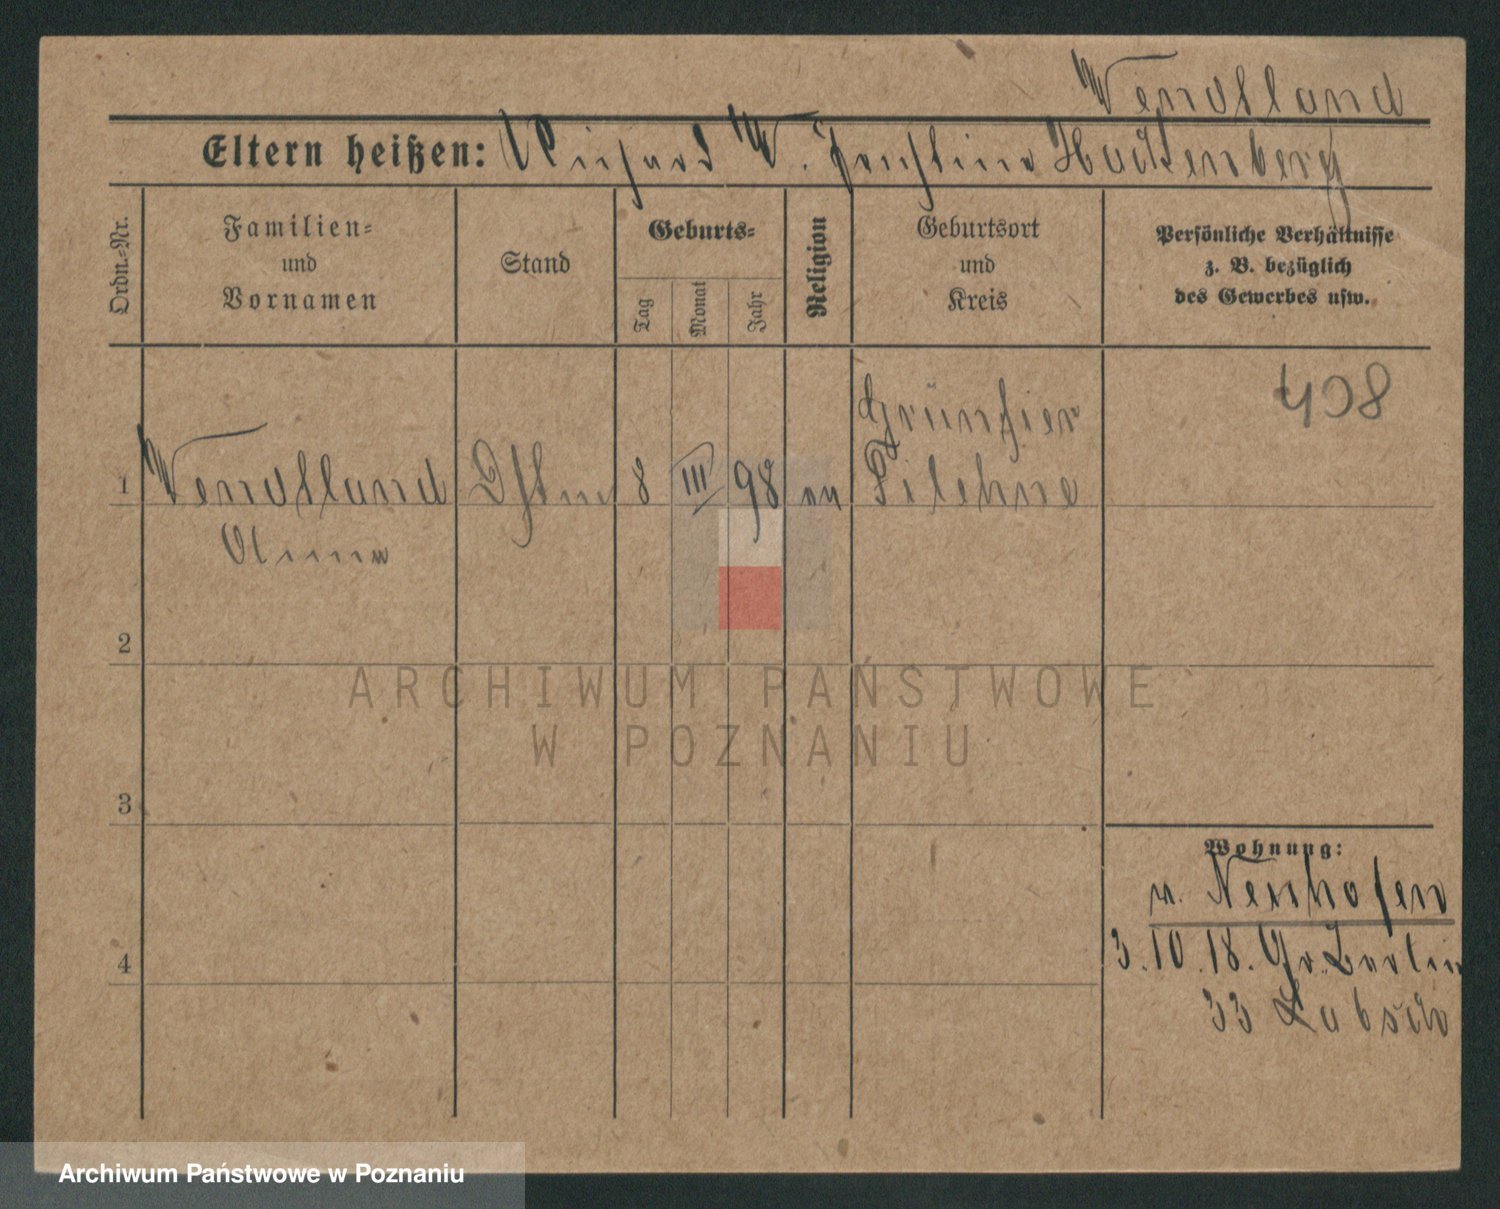 Wendtland
Eltern heißen: Richard W. Ernstine Hackenberg
Ordn.-Nr.
Familien-
und
Vornamen
Stand
Geburts-
Tag
Monat
Jahr
Religion
Geburtsort
und
Kreis
Persönliche Verhältnisse
z. B. bezüglich
des Gewerbes usw.
408
Grünfier
1 Wendtland 8 III 98 ev Filehne
Anna
2
ARCHIWUM PAŃSTWOWE
W POZNANIU
3
Wohnung:
v. Neuhofen
4
3.10.18. Gr. Berlin
33
Archiwum Państwowe w Poznaniu